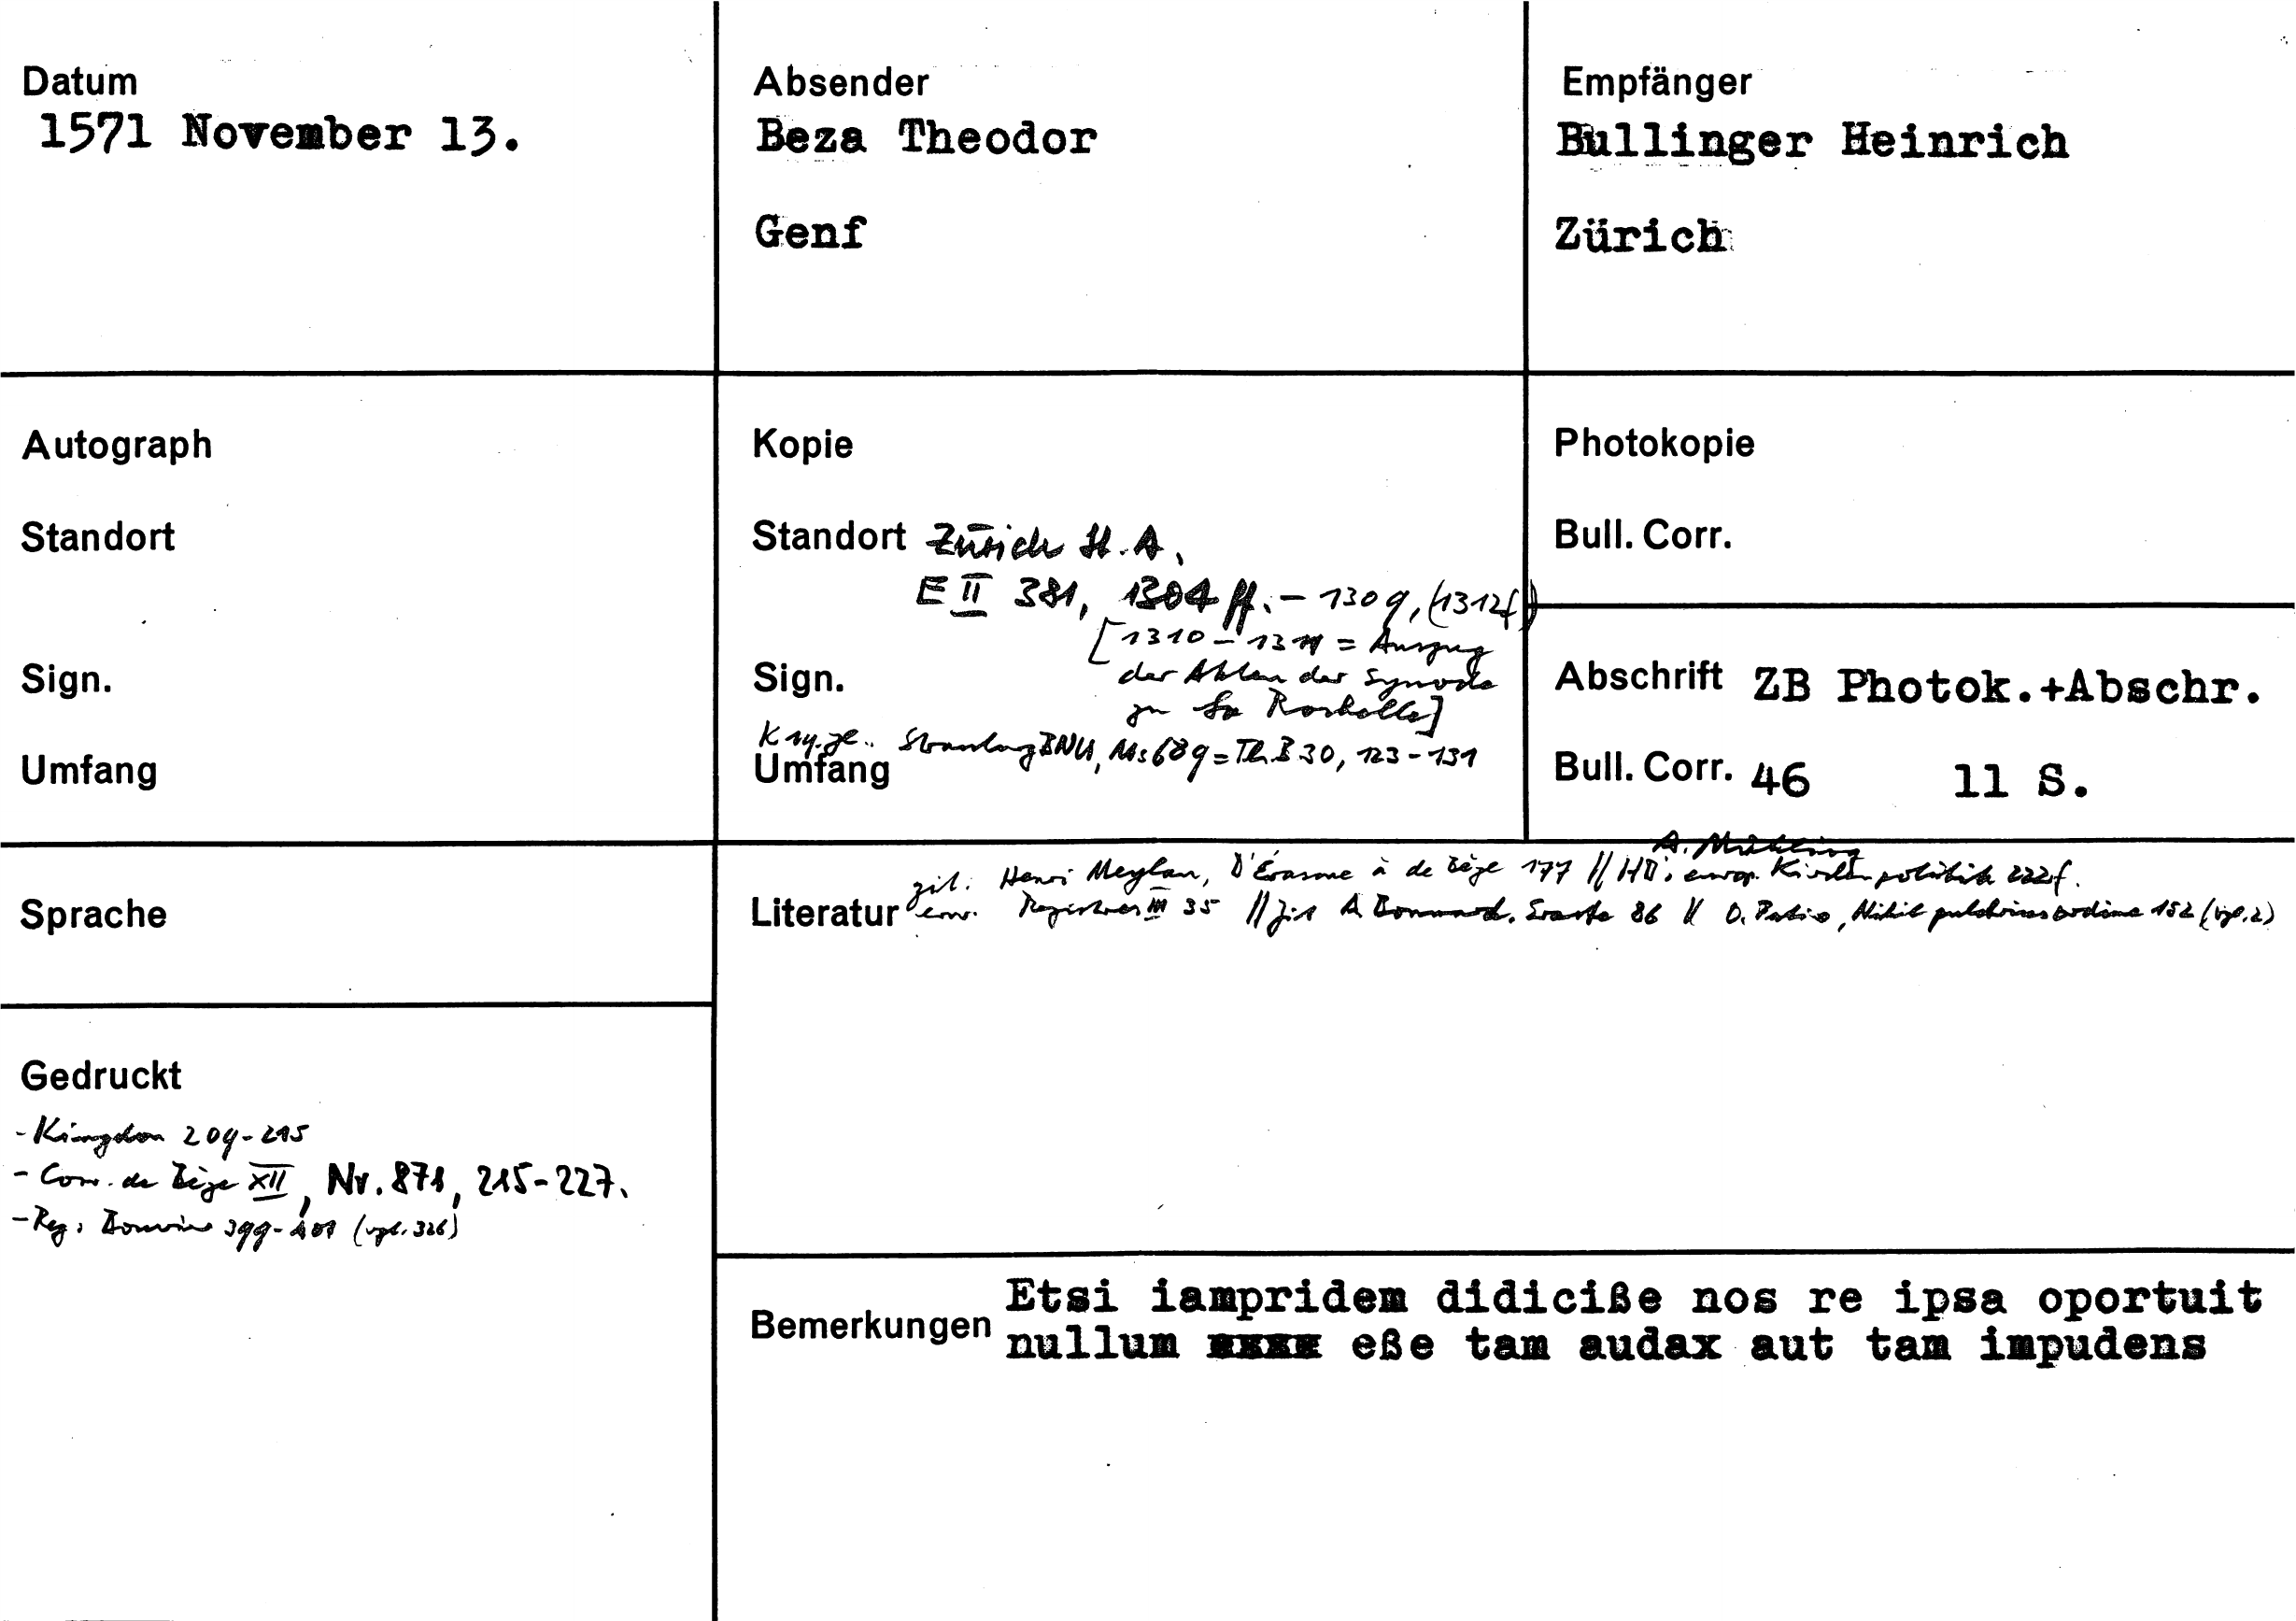 Datum
1571 November 13.
Absender
Beza Theodor
Genf
Empfänger
Bullinger Heinrich
Zürich
Autograph
Standort
Sign.
Umfang
Kopie
Standort Zürich St. A,
E II 381, 1304 ff. - 1309, (1312f)
[1310 - 1311 = Auszug
der Akten der Synode
zu La Rochelle]
Sign.
Strasburg BNU, Ms 689 = Th.B 30, 123-131
Umfang
Photokopie
Bull. Corr.
Abschrift ZB Photok.+Abschr.
Bull. Corr. 46 11 S.
Sprache
A. Mühling
zit. Henri Meylan, D'Érasme à de Bèze 177 // HB's europ. Kirchenpolitik 222f.
Literatur erw. Registres III 35 // zit A. Bonnard, Eraste 86 // 152 (vgl. 2)
Gedruckt
- Kingdon 209-215
- Corr. de Bèze XII, Nr. 871, 215-227.
- Reg: 399-401 (vgl. 326)
Bemerkungen
Etsi iampridem didiciße nos re ipsa oportuit
nullum eße tam audax aut tam impudens